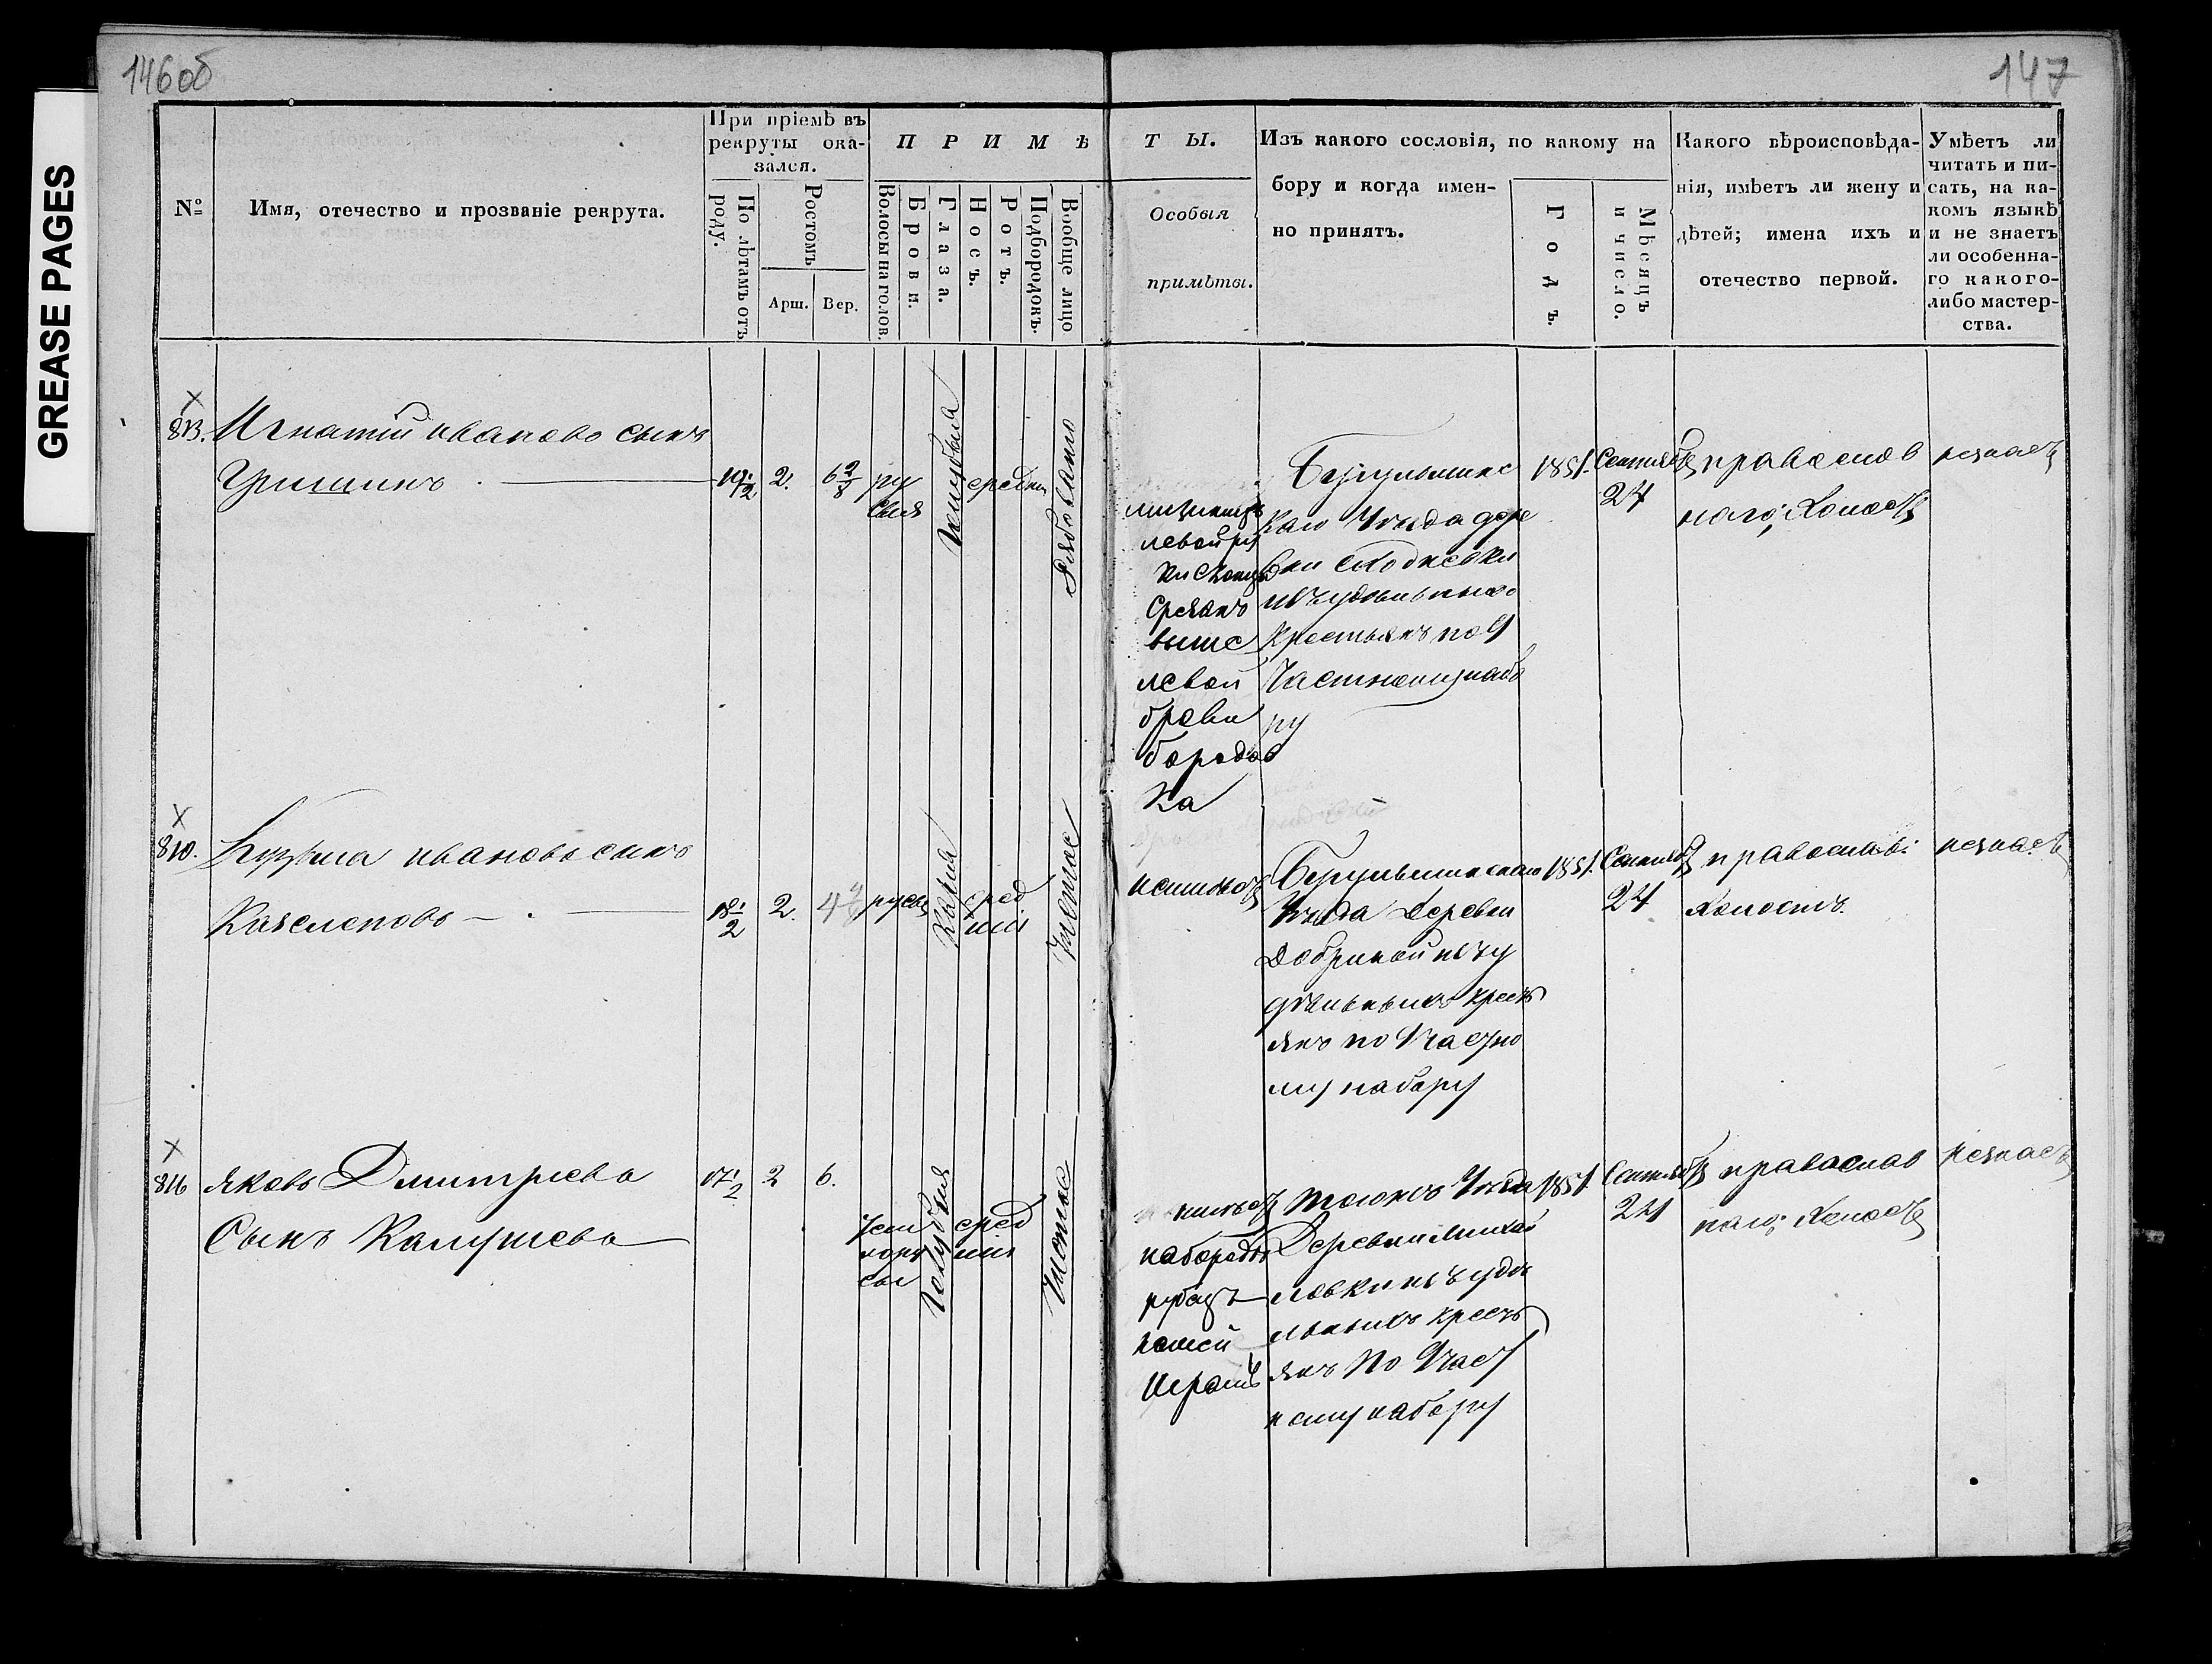 146об
147
GREASE PAGES
№
Имя, отечество и прозваніе рекрута.
При пріемѣ въ
рекруты ока-
зался.
По лѣтамъ отъ
роду.
Ростомъ
Арш.
Вер.
ПРИМѢ
Волосы на голов.
Брови.
Глаза.
Носъ.
Ротъ.
Подбородокъ.
Вообще лицо
ТЫ.
Особыя
примѣты.
Изъ какого сословія, по какому на
бору и когда имен-
но принятъ.
Годъ.
Мѣсяцъ
и число.
Какого вѣроисповѣда-
нія, имѣетъ ли жену и
дѣтей; имена ихъ и
отечество первой.
Умѣетъ ли
читать и пи-
сать, на ка-
комъ языкѣ
и не знаетъ
ли особенна-
го какого-
либо мастер-
ства.
813.
Игнатій иваново сынъ
Гришинъ
19 1/2
2.
6 2/8
ру
сыя
голубыя
средни
Рябовато
левой ру
ки
Срезанъ
выше
левой
брови
бородав
ка
Бугульминс
каго Уѣзда дере
вни
изъ удѣльныхъ
Крестьянъ по 9
Частному набо
ру
1851.
Сентябр
24
православ
наго; Холост
незнаетъ
810.
Кузьма ивановъ сынъ
18 1/2
2.
4
русы
Карія
сред
ніи
Чистое
неимѣетъ
Бугульминскаго
Уѣзда Деревни
Добриной изъ у
дѣльныхъ крест
янъ по 9 частно
му набору
1851.
Сентябр
24
православ:
Холостъ.
незнаетъ
816
Яковъ Дмитріева
Сынъ Калушева
17 1/2
2
6.
Темно
ру
сы
голубыя
сред
ніи
Чистое
на бородѣ
рубецъ
Тогожъ Уѣзда
Деревни Михай
ловки изъ удѣ
льныхъ крест
янъ по 9 част
ному набору
1851.
Сентябр
24
православ
наго; Холост
незнаетъ